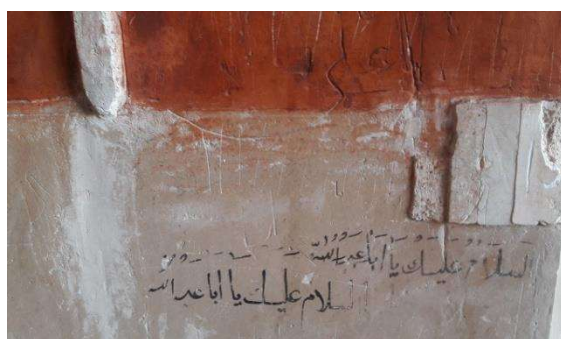 السلام عليك يا أبا عبد الله
السلام عليك يا ابا عبد الله